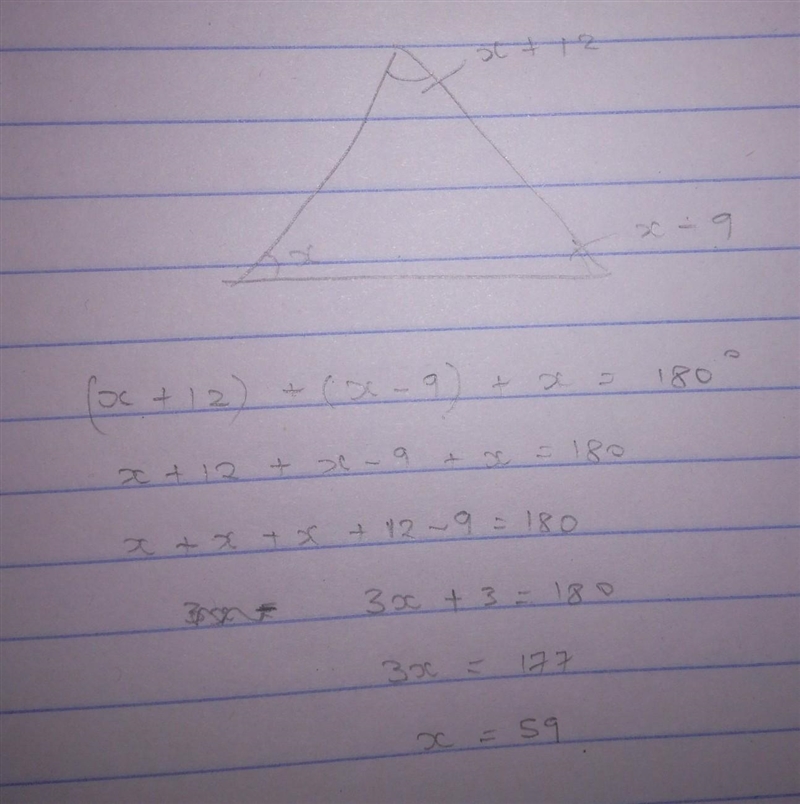 x + 12
x
x - 9
(x + 12) + (x - 9) + x = 180°
x + 12 + x - 9 + x = 180
x + x + x + 12 - 9 = 180
3x + 3 = 180
3x = 177
x = 59